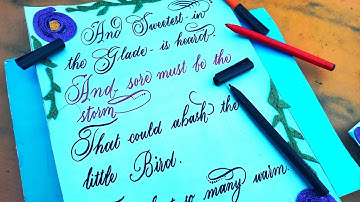 And Sweetest - in
the Glade - is heard.
And - sore must be the
storm
That could abash the
little Bird.
so many warm.